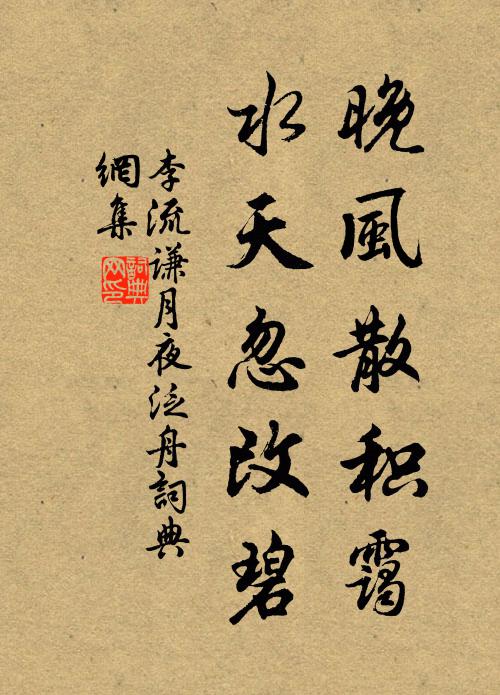 晚風散积靄
水天忽改碧
李流谦月夜泛舟詞典
網集
詞典
网印